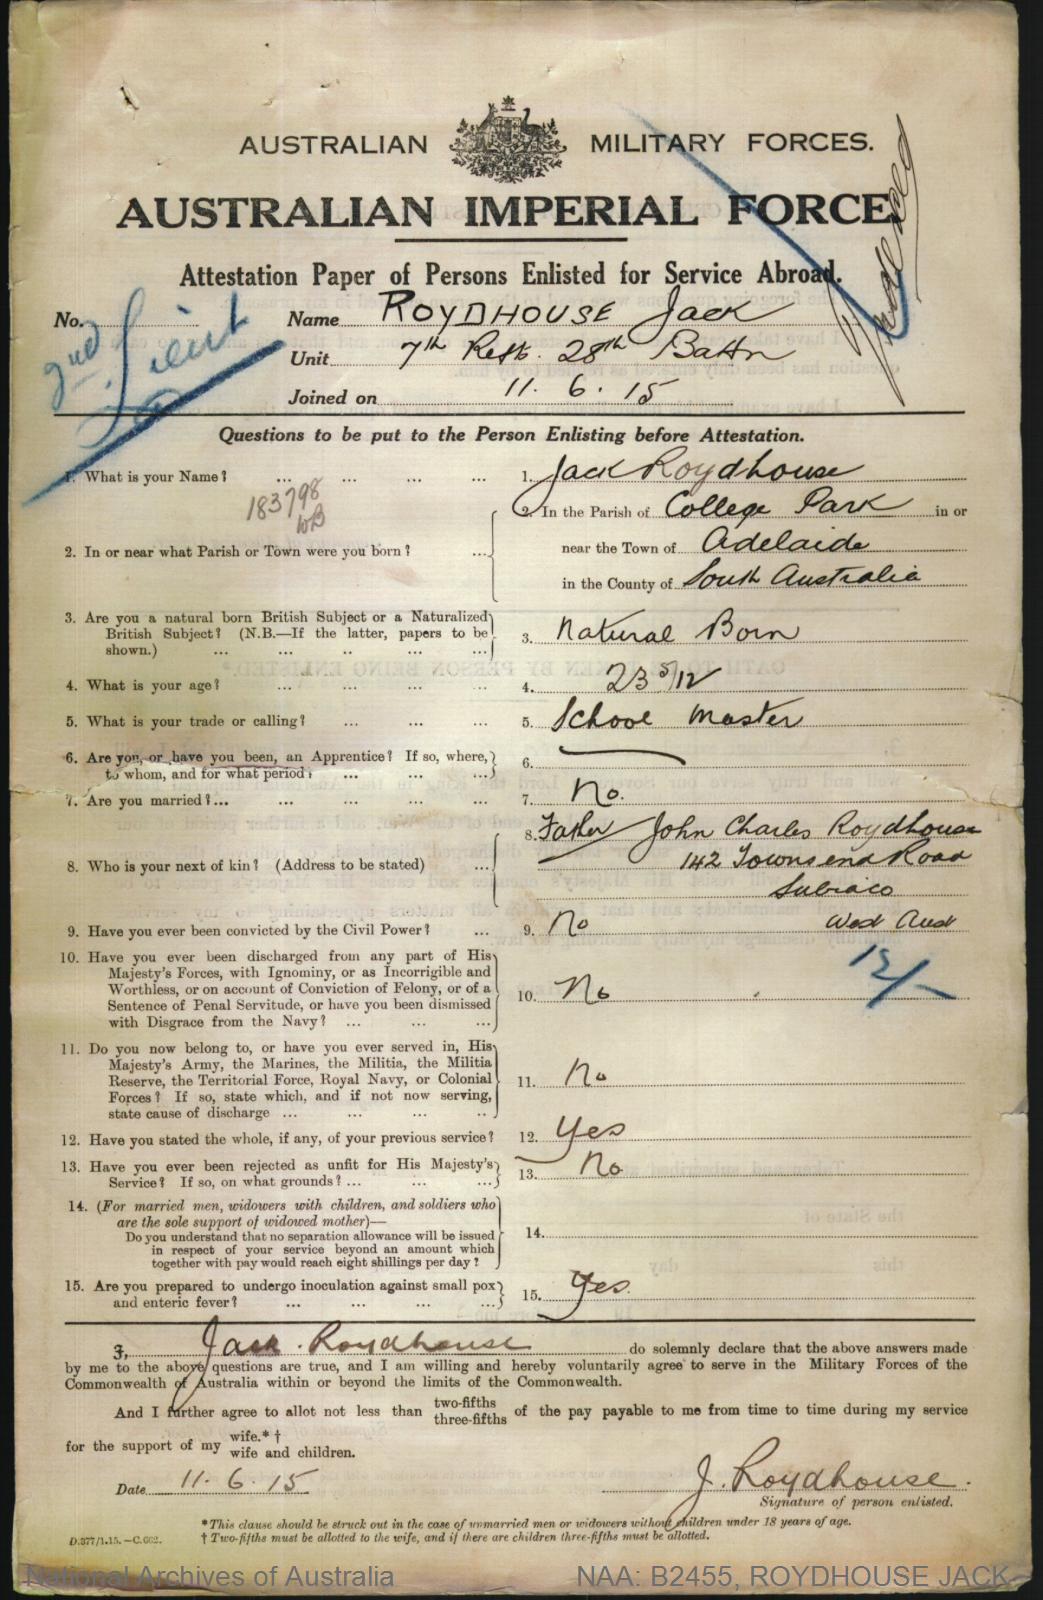 AUSTRALIAN MILITARY FORCES.
AUSTRALIAN IMPERIAL FORCE.
Attestation Paper of Persons Enlisted for Service Abroad.
No. Name ROYDHOUSE Jack
2nd Lieut
Unit 7th Reft. 28th Battn
Joined on 11. 6. 15
Questions to be put to the Person Enlisting before Attestation.
1. What is your Name? ... ... ... ... 1. Jack Roydhouse
183798
2. In or near what Parish or Town were you born? ... 2. In the Parish of College Park in or
near the Town of Adelaide
in the County of South Australia
3. Are you a natural born British Subject or a Naturalized
British Subject? (N.B.—If the latter, papers to be
shown.) ... ... .. ... ... 3. Natural Born
4. What is your age? ... ... ... ... 4. 23 5/12
5. What is your trade or calling? ... ... ... 5. School Master
6. Are you, or have you been, an Apprentice? If so, where,
to whom, and for what period? ... ... ... 6.
7. Are you married?... ... ... ... ... 7. No.
8. Who is your next of kin? (Address to be stated) ... 8. Father John Charles Roydhouse
142 Townsend Road
Subiaco
West Aust
9. Have you ever been convicted by the Civil Power? ... 9. No
10. Have you ever been discharged from any part of His
Majesty's Forces, with Ignominy, or as Incorrigible and
Worthless, or on account of Conviction of Felony, or of a
Sentence of Penal Servitude, or have you been dismissed
with Disgrace from the Navy? ... ... ... 10. No
11. Do you now belong to, or have you ever served in, His
Majesty's Army, the Marines, the Militia, the Militia
Reserve, the Territorial Force, Royal Navy, or Colonial
Forces? If so, state which, and if not now serving,
state cause of discharge ... ... ... .. 11. No
12. Have you stated the whole, if any, of your previous service? 12. Yes
13. Have you ever been rejected as unfit for His Majesty's
Service? If so, on what grounds? ... ... ... 13. No
14. (For married men, widowers with children, and soldiers who
are the sole support of widowed mother)—
Do you understand that no separation allowance will be issued
in respect of your service beyond an amount which
together with pay would reach eight shillings per day? 14.
15. Are you prepared to undergo inoculation against small pox
and enteric fever? ... ... ... ... 15. Yes.
I, Jack Roydhouse do solemnly declare that the above answers made
by me to the above questions are true, and I am willing and hereby voluntarily agree to serve in the Military Forces of the
Commonwealth of Australia within or beyond the limits of the Commonwealth.
And I further agree to allot not less than two-fifths three-fifths of the pay payable to me from time to time during my service
for the support of my wife.*† wife and children.
Date 11. 6. 15 J. Roydhouse.
Signature of person enlisted.
*This clause should be struck out in the case of unmarried men or widowers without children under 18 years of age.
† Two-fifths must be allotted to the wife, and if there are children three-fifths must be allotted.
D.377/1.15.—C.662.
National Archives of Australia NAA: B2455, ROYDHOUSE JACK